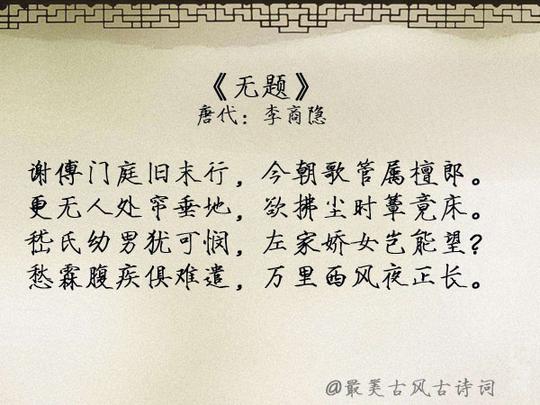 《无题》
唐代：李商隐
谢傅门庭旧末行，今朝歌管属檀郎。
更无人处帘垂地，欲拂尘时簟竟床。
嵇氏幼男犹可悯，左家娇女岂能望？
愁霖腹疾俱难遣，万里西风夜正长。
@最美古风古诗词